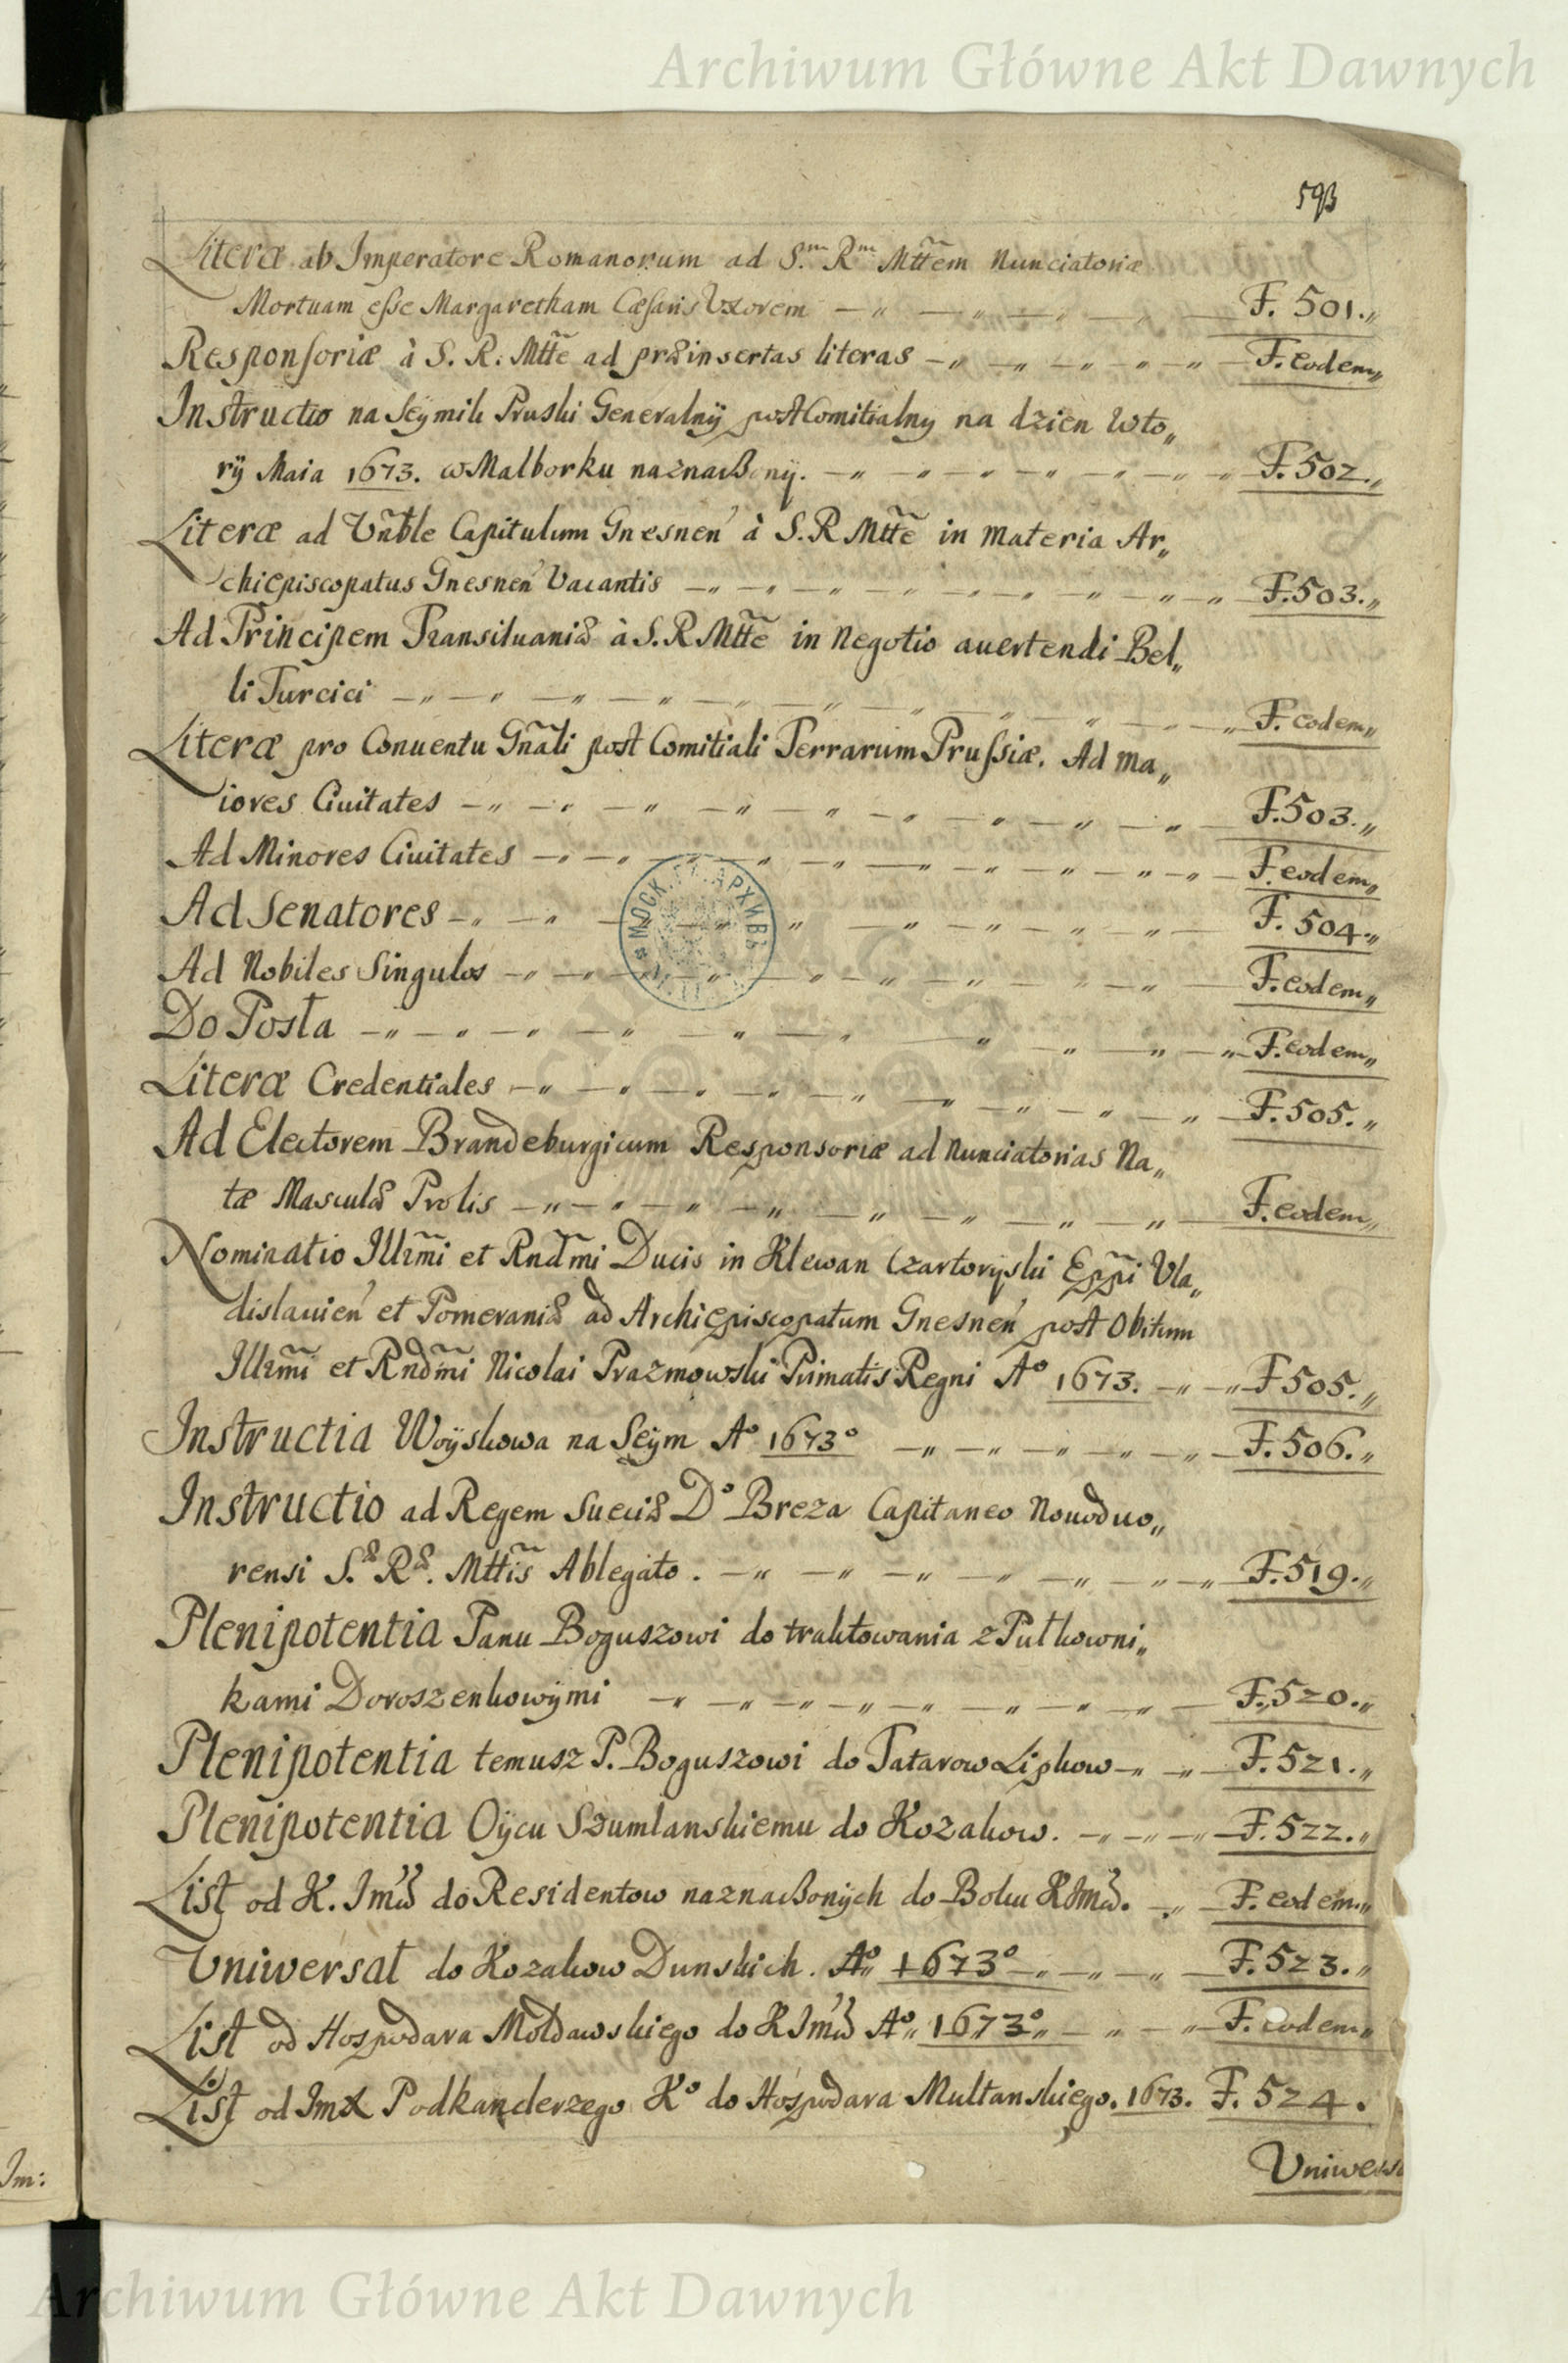 Archiwum Główne Akt Dawnych
593
Literæ ab Imperatore Romanorum ad S.m Rm Mttem Nunciatoriæ
Mortuam esse Margaretham Cæsaris Uxorem F. 501.
Responsoriæ à S. R. Mtte ad præinsertas literas F. eodem
Instructio na Seÿmik Pruski Generalnÿ postComitialny na dzien Wto„
rÿ Maia 1673. w Malborku naznaßonÿ. F. 502.
Literæ ad Vnble Capitulum Gnesnen à S. R Mtte in materia Ar„
chiepiscopatus Gnesnen Vacantis F. 503.
Ad Principem Transiluaniæ à S. R Mtte in Negotio auertendi Bel„
li Turcici F. eodem
Literæ pro Conuentu Gnali post Comitiali Terrarum Prussiæ. Ad ma„
iores Ciuitates F. 503.
Ad Minores Ciuitates F. eodem
Ad Senatores F. 504.
МОСК. АРХИВЪ
Ad Nobiles Singulos F. eodem
Do Posła F. eodem
Literæ Credentiales F. 505.
Ad Electorem Brandeburgicum Responsoriæ ad Nunciatorias Na„
tæ Masculæ Prolis F. eodem
Nominatio Illrmi et Rndmi Ducis in Klewan Czartorÿski Eppi Vla„
dislauien et Pomeraniæ ad Archiepiscopatum Gnesnen post Obitum
Illrmi et Rndmi Nicolai Prazmowski Primatis Regni Aº 1673. F 505.
Instructia Woÿskowa na Seÿm Aº 1673º F. 506.
Instructio ad Regem Sueciæ Dº Breza Capitaneo Nouoduo„
rensi S.æ Ræ. Mttis Ablegato. F. 519.
Plenipotentia Panu Boguszowi do traktowania z Pułkowni„
kami Doroszenkowÿmi F. 520.
Plenipotentia temusz P. Boguszowi do Tatarow Lipkow F. 521.
Plenipotentia Oÿcu Szumlanskiemu do Kozakow. F. 522.
List od K. Imci do Residentow naznaßonÿch do Boku K Imci. F. eodem
Vniwersał do Kozakow Dunskich. Aº 1673º F. 523.
List od Hospodara Mołdawskiego do K Imci Aº 1673º F. eodem
List od Imx Podkanclerzego Kº do Hospodara Multanskiego. 1673. F. 524.
Uniwersa
Im:
Archiwum Główne Akt Dawnych